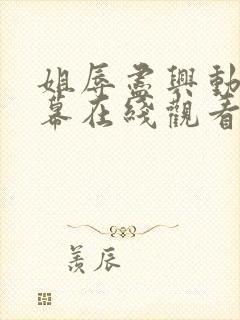 姐辱盡興動
幕在綫觀看
羨辰